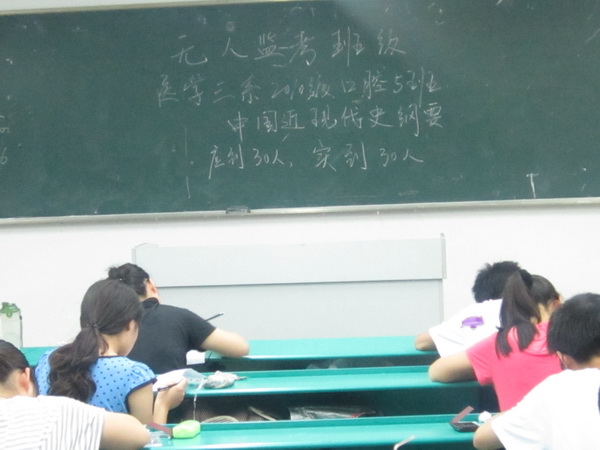 无人监考班级
医学三系2010级口腔5班
中国近现代史纲要
应到30人，实到30人